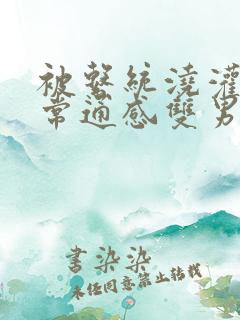 被繫統澆灌
常通感雙男
書染染
未經同意禁止轉載